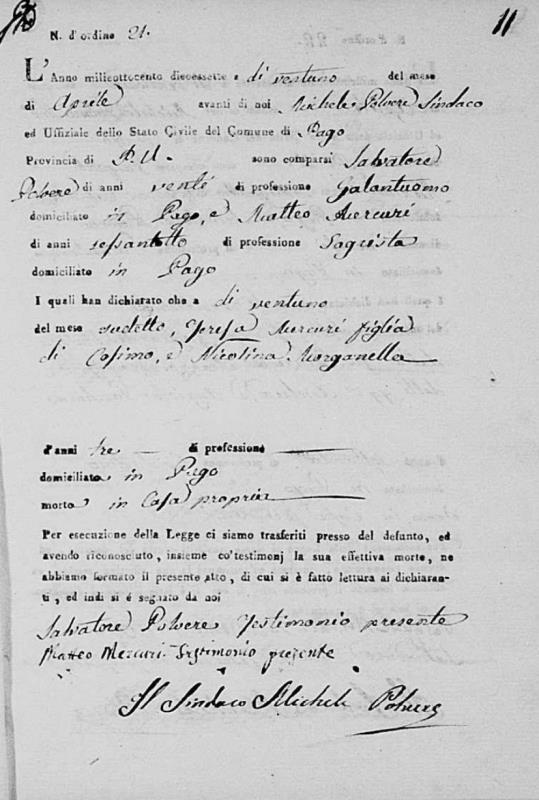 11
N. d'ordine 21.
L'Anno milleottocento diecessette a di ventuno del mese
di Aprile avanti di noi Michele Polvere Sindaco
ed Uffiziale dello Stato Civile del Comune di Pago
Provincia di P. U. sono comparsi Salvatore
Polvere di anni venti di professione Galantuomo
domiciliato in Pago, e Matteo Mercuri
di anni sessantotto di professione Sagrista
domiciliato in Pago
I quali han dichiarato che a di ventuno
del mese sudetto, Teresa Mercuri figlia
di Cosimo, e Nicolina Morganella
d'anni tre di professione
domiciliata in Pago
morta in Casa propria
Per esecuzione della Legge ci siamo trasferiti presso del defunto, ed
avendo riconosciuto, insieme co'testimonj la sua effettiva morte, ne
abbiamo formato il presente atto, di cui si è fatto lettura ai dichiaran-
ti, ed indi si é segnato da noi
Salvatore Polvere Testimonio presente
Matteo Mercuri Testimonio prezente
Il Sindaco Michele Polvere